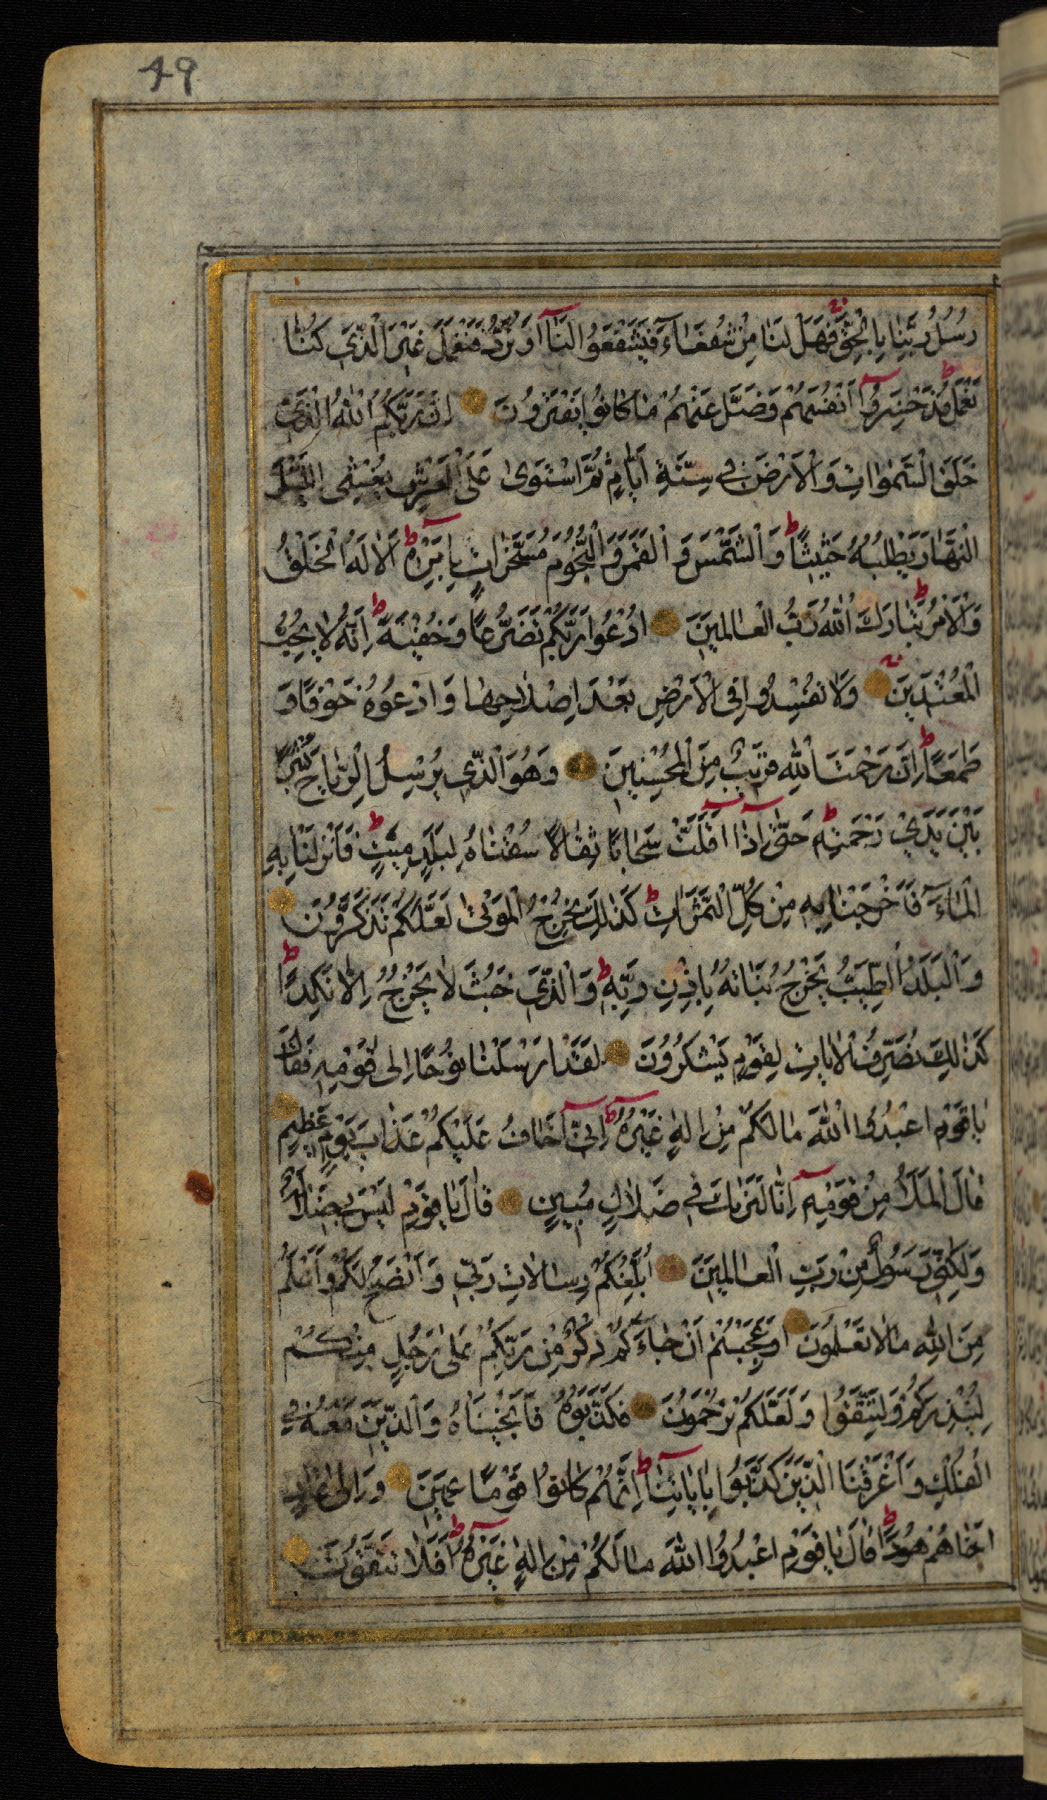 49
رُسُلُ رَبِّنا بِالْحَقِّ فَهَلْ لَنا مِنْ شُفَعاءَ فَيَشْفَعُوا لَنا أَوْ نُرَدُّ فَنَعْمَلَ غَيْرَ الَّذي كُنّا
نَعْمَلُ قَدْ خَسِرُوا أَنْفُسَهُمْ وَضَلَّ عَنْهُمْ ما كانُوا يَفْتَرُونَ إِنَّ رَبَّكُمُ اللهُ الَّذي
خَلَقَ السَّمٰواتِ وَالْأَرْضَ في سِتَّةِ أَيّامٍ ثُمَّ اسْتَوىٰ عَلَى الْعَرْشِ يُغْشِي اللَّيْلَ
النَّهارَ يَطْلُبُهُ حَثيثًا وَالشَّمْسَ وَالْقَمَرَ وَالنُّجُومَ مُسَخَّراتٍ بِأَمْرِهِ أَلا لَهُ الْخَلْقُ
وَالْأَمْرُ تَبارَكَ اللهُ رَبُّ الْعالَمينَ ادْعُوا رَبَّكُمْ تَضَرُّعًا وَخُفْيَةً إِنَّهُ لا يُحِبُّ
الْمُعْتَدينَ وَلا تُفْسِدُوا فِي الْأَرْضِ بَعْدَ إِصْلاحِها وَادْعُوهُ خَوْفًا وَ
طَمَعًا إِنَّ رَحْمَتَ اللهِ قَريبٌ مِنَ الْمُحْسِنينَ وَهُوَ الَّذي يُرْسِلُ الرِّياحَ بُشْرًا
بَيْنَ يَدَيْ رَحْمَتِهِ حَتّىٰ إِذا أَقَلَّتْ سَحابًا ثِقالًا سُقْناهُ لِبَلَدٍ مَيِّتٍ فَأَنْزَلْنا بِهِ
الْماءَ فَأَخْرَجْنا بِهِ مِنْ كُلِّ الثَّمَراتِ كَذٰلِكَ نُخْرِجُ الْمَوْتىٰ لَعَلَّكُمْ تَذَكَّرُونَ
وَالْبَلَدُ الطَّيِّبُ يَخْرُجُ نَباتُهُ بِإِذْنِ رَبِّهِ وَالَّذي خَبُثَ لا يَخْرُجُ إِلّا نَكِدًا
كَذٰلِكَ نُصَرِّفُ الْآياتِ لِقَوْمٍ يَشْكُرُونَ لَقَدْ أَرْسَلْنا نُوحًا إِلىٰ قَوْمِهِ فَقالَ
يا قَوْمِ اعْبُدُوا اللهَ ما لَكُمْ مِنْ إِلٰهٍ غَيْرُهُ إِنّي أَخافُ عَلَيْكُمْ عَذابَ يَوْمٍ عَظيمٍ
قالَ الْمَلَأُ مِنْ قَوْمِهِ إِنّا لَنَراكَ في ضَلالٍ مُبينٍ قالَ يا قَوْمِ لَيْسَ بي ضَلالَةٌ
وَلٰكِنّي رَسُولٌ مِنْ رَبِّ الْعالَمينَ أُبَلِّغُكُمْ رِسالاتِ رَبّي وَأَنْصَحُ لَكُمْ وَأَعْلَمُ
مِنَ اللهِ ما لا تَعْلَمُونَ أَوَعَجِبْتُمْ أَنْ جاءَكُمْ ذِكْرٌ مِنْ رَبِّكُمْ عَلىٰ رَجُلٍ مِنْكُمْ
لِيُنْذِرَكُمْ وَلِتَتَّقُوا وَلَعَلَّكُمْ تُرْحَمُونَ فَكَذَّبُوهُ فَأَنْجَيْناهُ وَالَّذينَ مَعَهُ في
الْفُلْكِ وَأَغْرَقْنَا الَّذينَ كَذَّبُوا بِآياتِنا إِنَّهُمْ كانُوا قَوْمًا عَمينَ وَإِلىٰ عادٍ
أَخاهُمْ هُودًا قالَ يا قَوْمِ اعْبُدُوا اللهَ ما لَكُمْ مِنْ إِلٰهٍ غَيْرُهُ أَفَلا تَتَّقُونَ